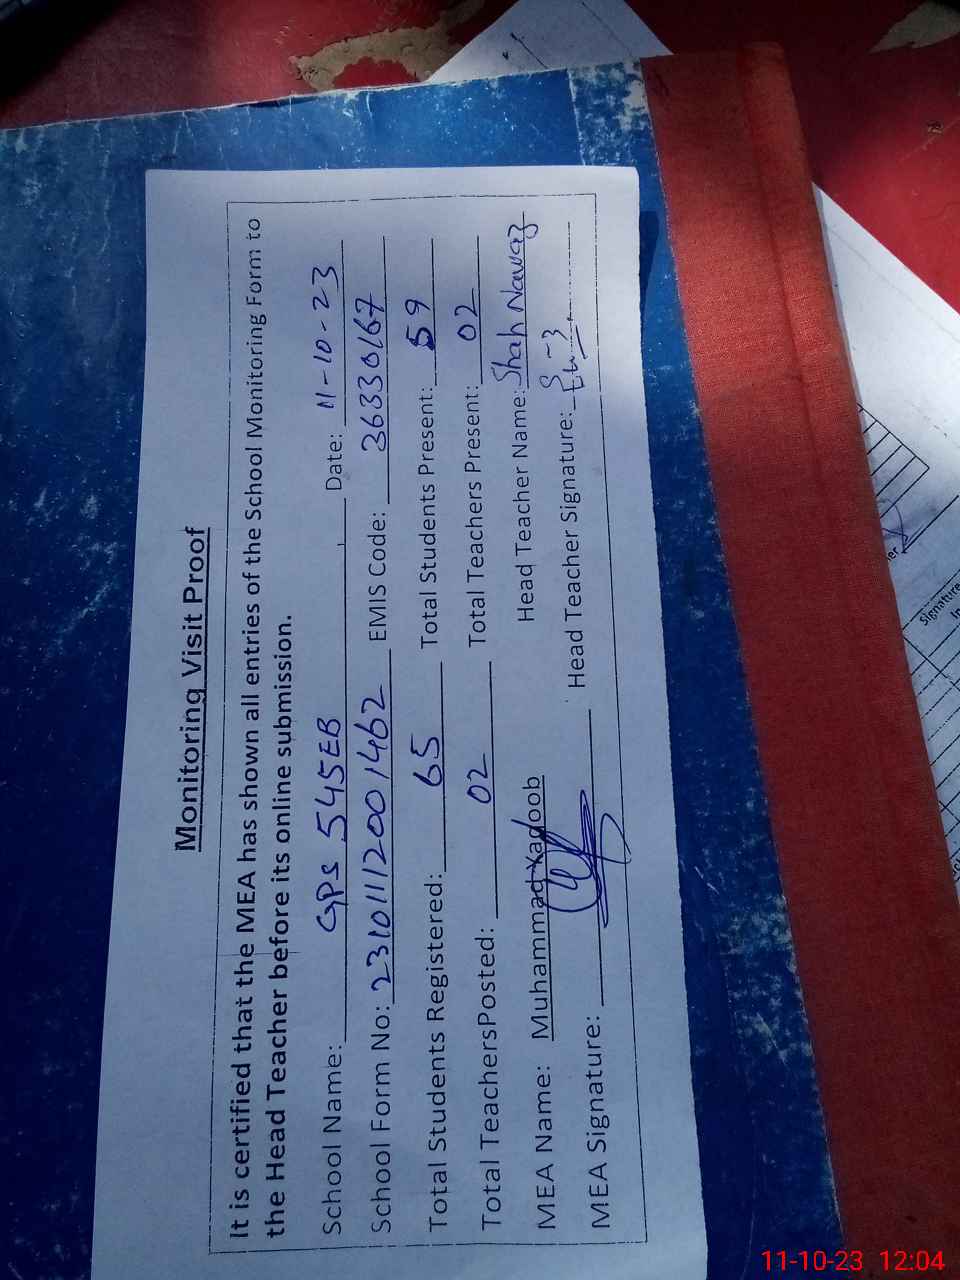 Monitoring Visit Proof
It is certified that the MEA has shown all entries of the School Monitoring Form to
the Head Teacher before its online submission.
School Name: GPS 545EB Date: 11-10-23
School Form No: 23101112001462 EMIS Code: 36330167
Total Students Registered: 65 Total Students Present: 59
Total TeachersPosted: 02 Total Teachers Present: 02
MEA Name: Muhammad Yaqoob Head Teacher Name: Shah Nawaz
MEA Signature: Head Teacher Signature:
Signature
11-10-23 12:04